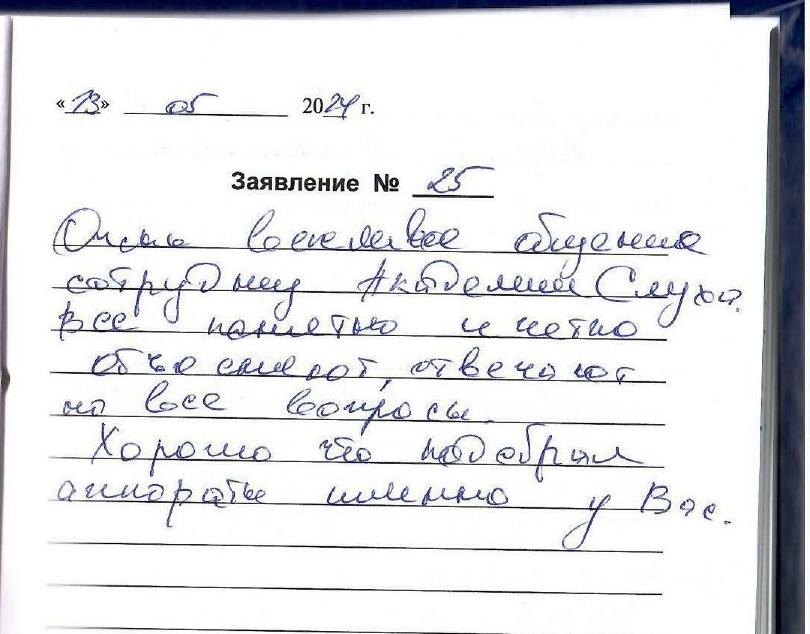 «13» 05 2024 г.
Заявление № 25
Очень вежливое общение
сотрудниц Академии Слуха.
Все понятно и четко
объясняют, отвечают
на все вопросы.
Хорошо что подобрал
аппараты именно у Вас.